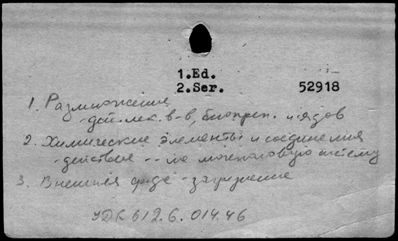 1.Ed.
2.Ser. 52918
1. Размножение
-дей. лек. в-в, биопреп. и ядов
2. Химические элементы и соединения
-действие -- на мочеполовую систему
3. Внешняя среда - загрязнение
УДК 612.6.014.46